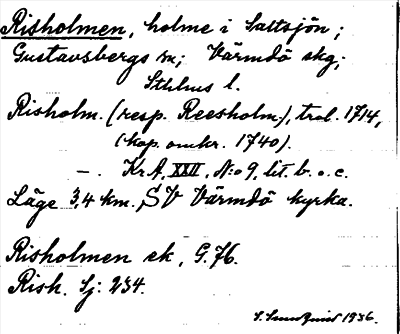 Risholmen, holme i Saltsjön;
Gustavsbergs sn; Värmdö skg;
Sthlms l.
Risholm. (resp. Reesholm), trol. 1714,
(kop. omkr. 1740).
—. Kr.A. XXII, N:o 9, lit. b. o. c.
Läge 3,4 km. SV Värmdö kyrka.
Risholmen ek, G. 76.
Rish. Sj: 234.
1936.